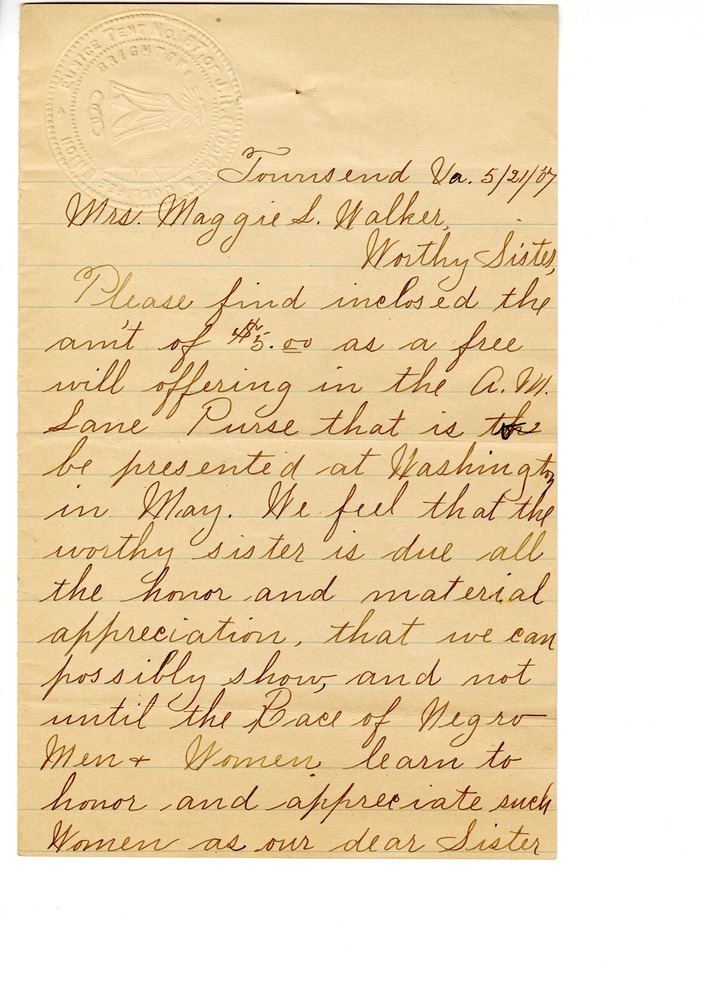 EUNICE TENT NO. 167, OF J.R. GIDD
BRIGHT
Townsend Va. 5/21/07
Mrs. Maggie L. Walker,
Worthy Sister,
Please find inclosed the
am't of $5.00 as a free
will offering in the A. M.
Lane Purse that is to
be presented at Washington
in May. We feel that the
worthy sister is due all
the honor and material
appreciation, that we can
possibly show, and not
until the Race of Negro
Men + Women learn to
honor and appreciate such
Women as our dear Sister